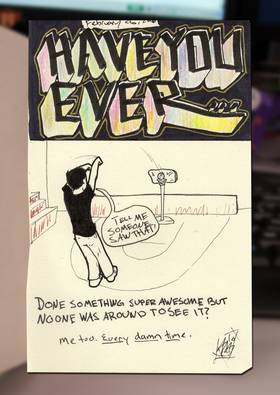 HAVE YOU
EVER...
TELL ME
SOMEONE
SAW THAT!
DONE SOMETHING SUPER AWESOME BUT
NO ONE WAS AROUND TO SEE IT?
me too. Every damn time.